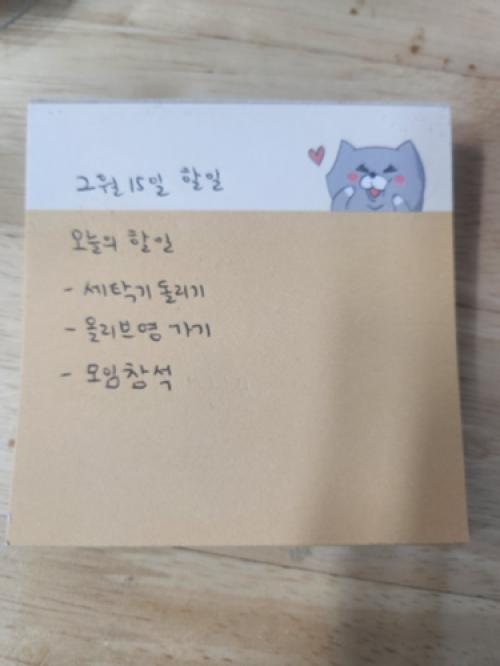 2월 15일 할일
오늘의 할일
- 세탁기 돌리기
- 올리브영 가기
- 모임참석